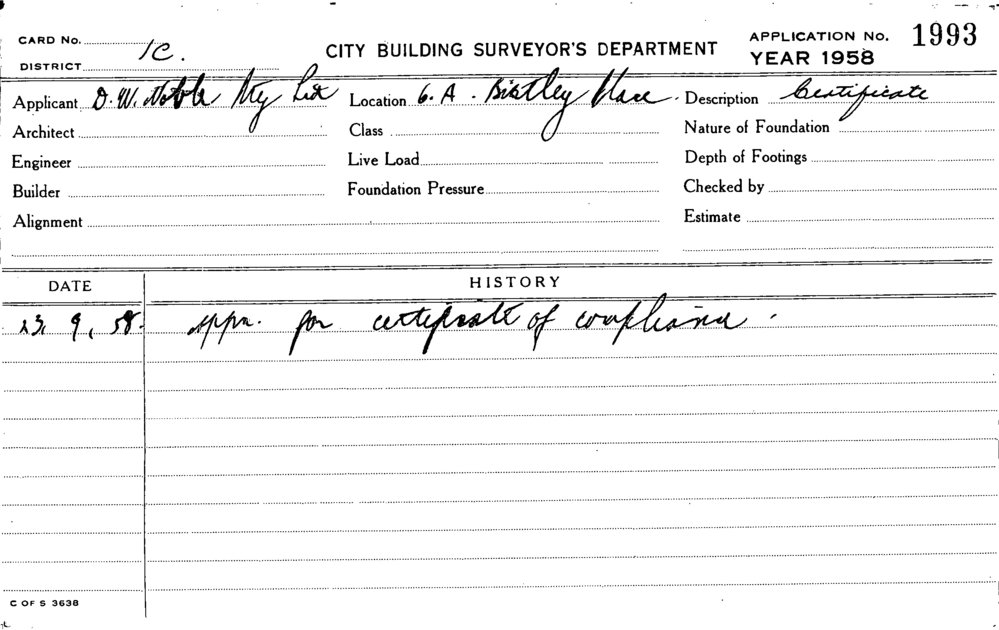 CARD No. 1C. CITY BUILDING SURVEYOR'S DEPARTMENT APPLICATION No. 1993
DISTRICT YEAR 1958
Applicant D. W. Noble Pty Ltd Location 6. A. Birtley Place. Description Certificate
Architect Class Nature of Foundation
Engineer Live Load Depth of Footings
Builder Foundation Pressure Checked by
Alignment Estimate
DATE HISTORY
23. 9. 58. Appn. for certificate of compliance.
C OF S 3638